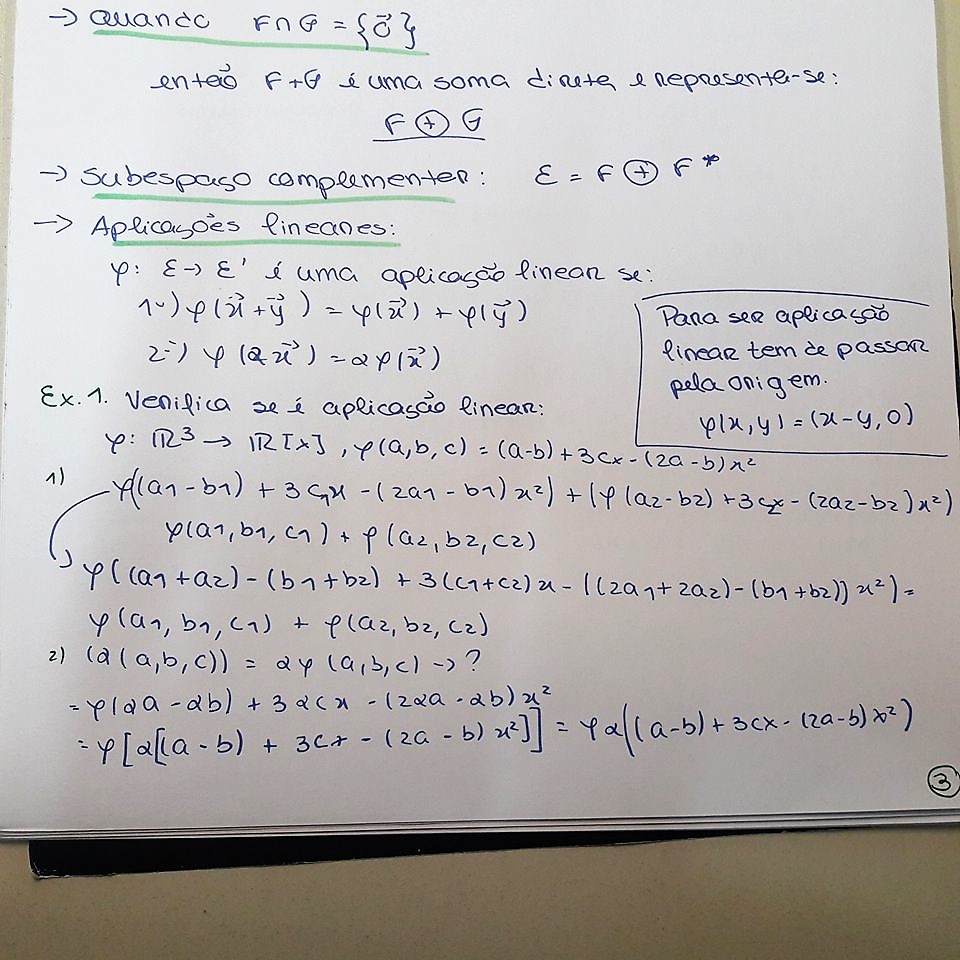 → quando F∩G = {0⃗}
então F+G é uma soma direta e representa-se:
F ⊕ G
→ Subespaço complementar: E = F ⊕ F*
→ Aplicações lineares:
φ: E → E' é uma aplicação linear se:
1º) φ(x⃗+y⃗) = φ(x⃗) + φ(y⃗)
2º) φ(αx⃗) = αφ(x⃗)
Para ser aplicação
linear tem de passar
pela origem.
φ(x,y) = (x-y, 0)
Ex. 1. Verifica se é aplicação linear:
φ: ℝ³ → ℝ[x], φ(a,b,c) = (a-b) + 3cx - (2a-b)x²
1) φ((a1-b1) + 3c1x - (2a1-b1)x²) + (φ(a2-b2) + 3c2 - (2a2-b2)x²)
φ(a1,b1,c1) + φ(a2,b2,c2)
φ((a1+a2) - (b1+b2) + 3(c1+c2)x - ((2a1+2a2) - (b1+b2))x²) =
φ(a1,b1,c1) + φ(a2,b2,c2)
2) (α(a,b,c)) = αφ(a,b,c) → ?
= φ(αa - αb) + 3αcx - (2αa - αb)x²
= φ[α[(a-b) + 3cx - (2a-b)x²]] = φα((a-b) + 3cx - (2a-b)x²)
3